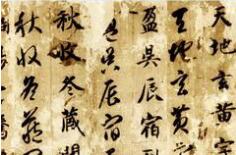 天地玄黄宇
天地玄黄
盈昃辰宿
昃辰宿
秋收冬藏閏
秋收冬藏